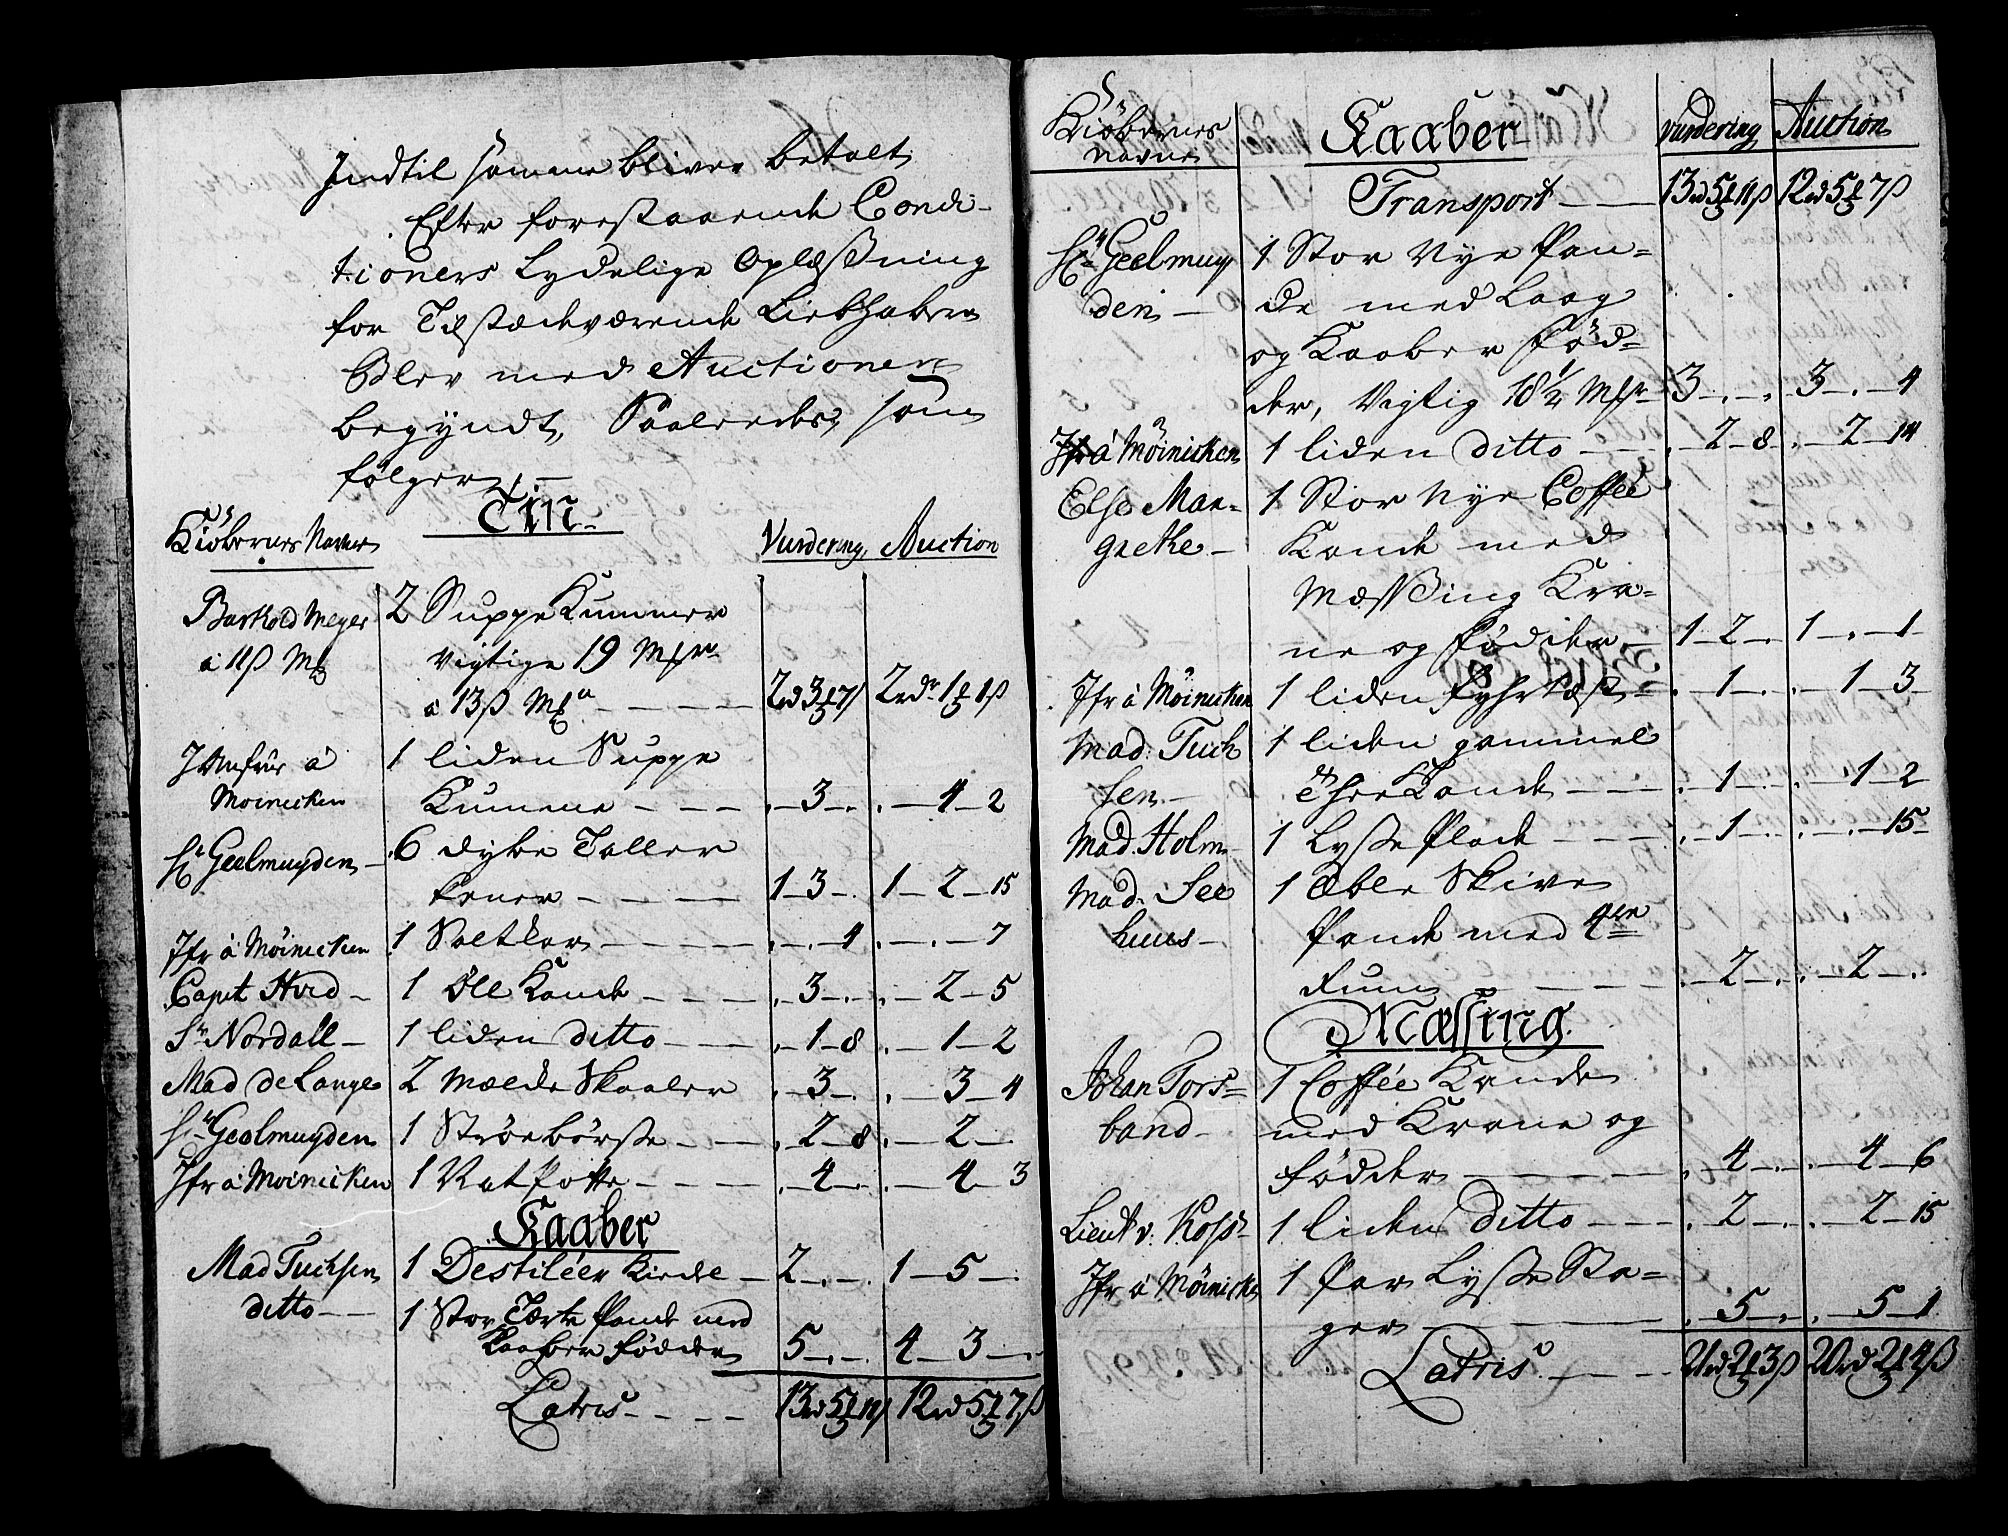 Indtil samme bliver betalt
Efter forestaaende Condi-
tioners Lydelige Oplæßning
for Tilstædeværende Liebhabere
Blev med Auctionen
begyndt, Saaledes, som
følger,
Tin
Kiöbernes Navne Vurdering Auction
Barthold Meyer 2 Suppe Kummer
à 11ß Mk vigtige 19 Mkr
à 13ß Mk 2rd 3 7ß 2rdr 1 1ß
Jomfrue à 1 liden Suppe
Moinichen Kumme - 3 - 4 - 2
Hr Geelmuyden 6 dybe Taller
kener 1 - 3 - 1 - 2 - 15
Jfr à Möinichen 1 Saltkar 4 - 7
Capit Hvid 1 Öll Kande 3 - 2 - 5
Sr Nordall 1 liden ditto 1 - 8 1 - 2
Mad de Lange 2 Melde Skaaler 3 - 3 - 4
Hr Geelmuyden 1 Ströebörße 2 - 8 2 -
Jfr à Moinichen 1 Nat Potte 4 - 4 - 3
Kaaber
Mad Tuchsen 1 Destiléer Kiedel 2 - 1 - 5 -
ditto 1 Stor Tærte Pande med
Kaaber Födder 5 - 4 - 3 -
Latris 13rd 5 11ß 12rd 5 7ß
Kiöbernes Navne Kaaber Vurdering Auction
Transport 13rd 5 11ß 12rd 5 7ß
Hr Geelmuy 1 Stor Nye Pan-
den de med Laag
og Kaaber Fød-
der, Vigtig 18½ Mkr 3 - 3 - 4
Jfr à Möinichen 1 liden ditto 2 - 8 2 - 14
Else Mar- 1 Stor Nye Coffeé
grethe Kande med
Mæssßing Kra-
ne og Födder 1 - 2 - 1 - - 1
Jfr à Möinichen 1 liden Fyhrtæst 1 - 1 - 3
Mad. Tuch 1 liden gammel
sen Thee Kande 1 - 1 - 2
Mad. Holm 1 Lyße Plade 1 - 15
Mad. See 1 Æble Skive
huus Pande med 4re
Rum 2 - 2 -
Mæssing
Johan Fors- 1 Coffée Kande
band med Krane og
Födder 4 - 4 - 6
Lieut v. Koss 1 liden ditto 2 - 2 - 15
Jfr à Möiniche 1 Par Lyße Sta-
ger 5 - 5 - 1
Latris 21rd 2 3ß 20rd 2 4ß